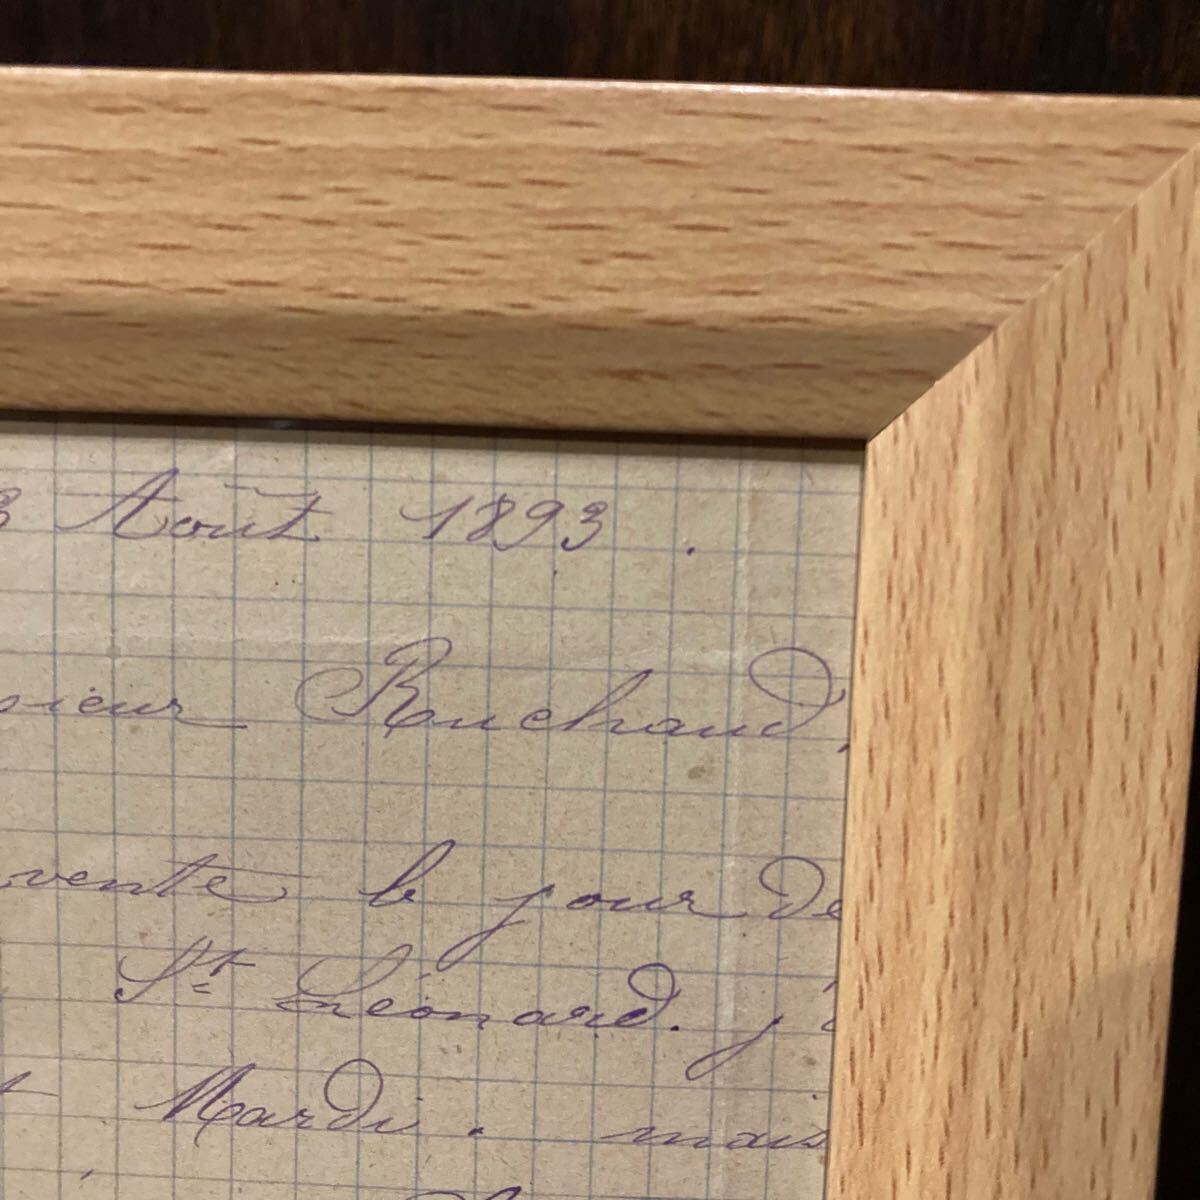 3 Août 1893.
sieur Rouchaud,
vente le jour de
St Léonard. j'
Mardi. mais